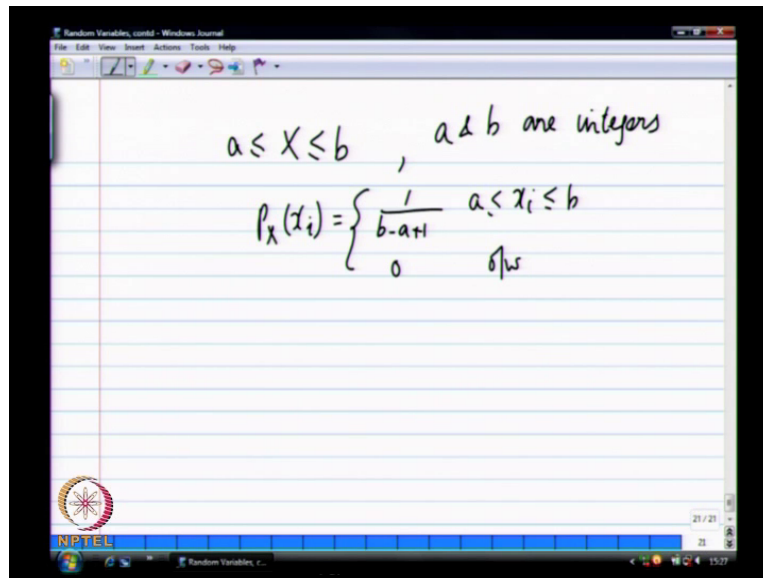 Random Variables, contd - Windows Journal
File Edit View Insert Actions Tools Help
a ≤ X ≤ b , a & b are integers
P_X(x_i) = { 1/(b-a+1) a ≤ x_i ≤ b
0 o/w
21 / 21
21
NPTEL
Random Variables, c...
15:27